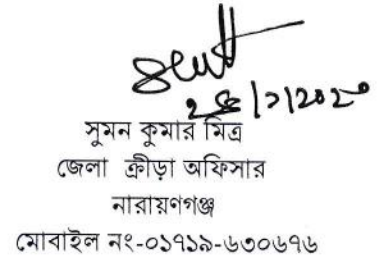 সুমন কুমার মিত্র
জেলা ক্রীড়া অফিসার
নারায়ণগঞ্জ
মোবাইল নং-০১৭১৯-৬৩০৬৭৬